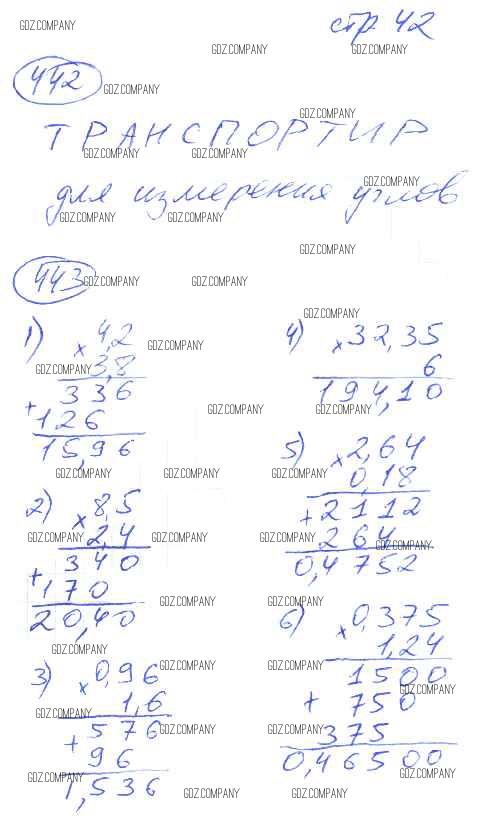 GDZ.COMPANY
стр 42
GDZ.COMPANY GDZ.COMPANY
442 GDZ.COMPANY
GDZ.COMPANY
ТРАНСПОРТИР
GDZ.COMPANY GDZ.COMPANY
GDZ.COMPANY
для измерения углов
GDZ.COMPANY GDZ.COMPANY
GDZ.COMPANY
443 GDZ.COMPANY GDZ.COMPANY
GDZ.COMPANY
1) × 4,2
GDZ.COMPANY
GDZ.COMPANY 3,8
336
+ 126
15,96
GDZ.COMPANY GDZ.COMPANY
2) × 8,5
GDZ.COMPANY 2,4 GDZ.COMPANY
340
+ 170
20,40
GDZ.COMPANY
GDZ.COMPANY
3) × 0,96
GDZ.COMPANY
GDZ.COMPANY 1,6
576 GDZ.COMPANY
+ 96
GDZ.COMPANY
1,536
GDZ.COMPANY
4) × 32,35
6
194,10
GDZ.COMPANY GDZ.COMPANY
5) × 2,64
GDZ.COMPANY 0,18
+ 2112
264
GDZ.COMPANY GDZ.COMPANY
0,4752
GDZ.COMPANY
6) × 0,375
1,24
1500
GDZ.COMPANY
+ 750
375
GDZ.COMPANY
0,46500
GDZ.COMPANY
GDZ.COMPANY